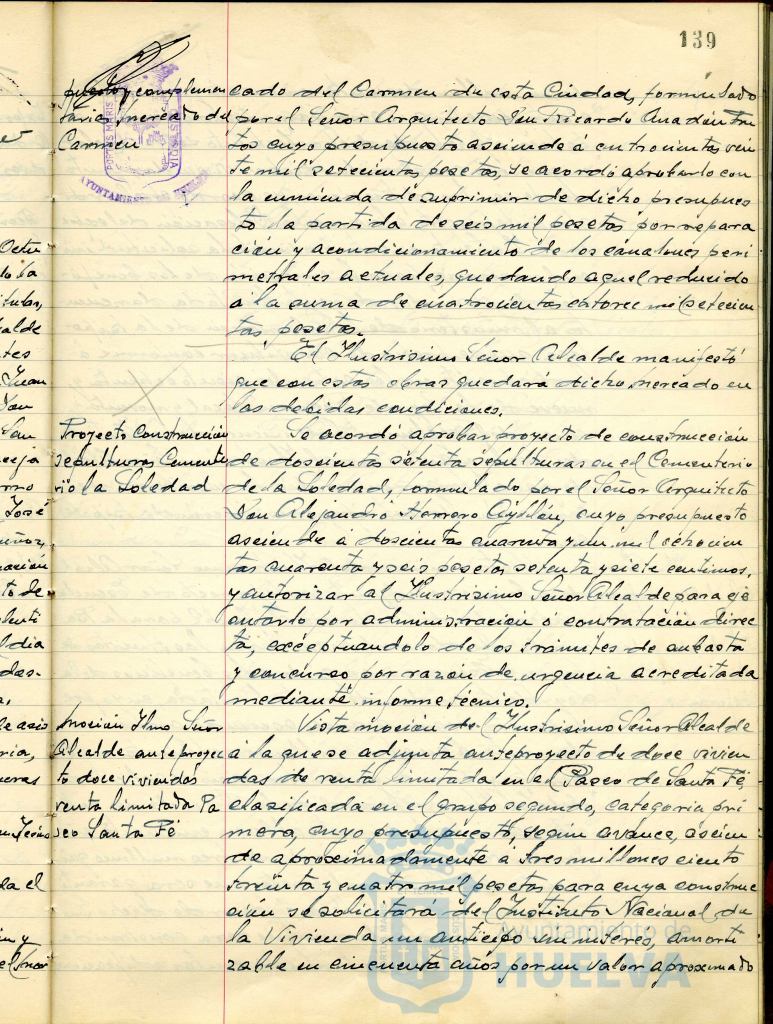 139
puesto y complemen
tario, mercado del
Carmen
cado del Carmen de esta Ciudad, formulado
por el Señor Arquitecto Don Ricardo Anadón Fru
tos cuyo presupuesto asciende á cuatrocientas vein
te mil setecientas pesetas, se acordó aprobarlo con
la enmienda de suprimir de dicho presupues
to la partida de seis mil pesetas por repara
ción y acondicionamiento de los canalones peri
metrales actuales, quedando aquel reducido
a la suma de cuatrocientas catorce mil setecien
tas pesetas.
El Ilustrisimo Señor Alcalde manifestó
que con estas obras quedará dicho mercado en
las debidas condiciones.
Proyecto Construcción
sepulturas Cemente
rio la Soledad
Se acordó aprobar proyecto de construcción
de doscientas setenta sepulturas en el Cementerio
de la Soledad, formulado por el Señor Arquitecto
Don Alejandro Herrero Ayllón, cuyo presupuesto
asciende á doscientas cuarenta y un mil ochocien
tas cuarenta y seis pesetas setenta y siete centimos,
y autorizar al Ilustrisimo Señor Alcalde para eje
cutarlo por administración ó contratación direc
ta, exceptuandolo de los trámites de subasta
y concurso por razón de urgencia acreditada
mediante informe técnico.
moción Ilmo Señor
Alcalde anteproyec
to doce viviendas
renta limitada Pa
seo Santa Fé
Vista moción del Ilustrisimo Señor Alcalde
á la que se adjunta anteproyecto de doce vivien
das de renta limitada en el Paseo de Santa Fé
clasificada en el grupo segundo, categoria pri
mera, cuyo presupuesto, según avance, ascien
de aproximadamente a tres millones ciento
treinta y cuatro mil pesetas para cuya construc
ción se solicitara del Instituto Nacional de
la Vivienda un anticipo sin interes, amorti
zable en cincuenta años por un valor aproximado
Ayuntamiento de
HUELVA